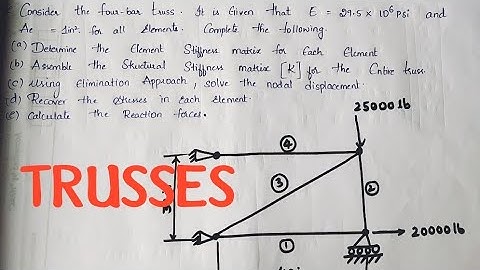 Consider the four-bar truss. It is Given that E = 29.5 × 10⁶ Psi and
Ae = 1in². for all Elements. Complete the following.
(a) Determine the Element Stiffness matrix for Each Element
(b) Assemble the Structural Stiffness matrix [K] for the Entire truss.
(c) Using Elimination Approach, solve the nodal displacement.
(d) Recover the stresses in Each Element.
(e) Calculate the Reaction forces.
25000 lb
4
3
2
TRUSSES
1
20000 lb